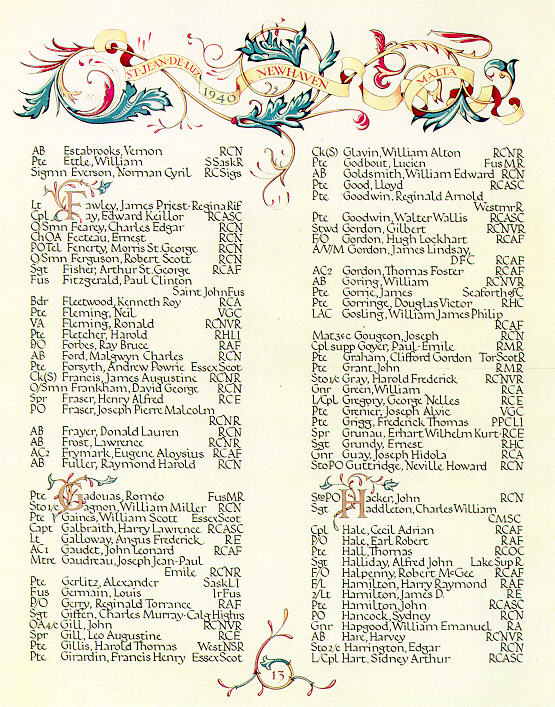 ST·JEAN·DE·LUZ
1940
NEWHAVEN
MALTA
AB Estabrooks, Vernon RCN
Pte Ettle, William SSaskR
Sigmn Everson, Norman Cyril RCSigs
Lt Fawley, James Priest-ReginaRif
Cpl Fay, Edward Keillor RCASC
O/Smn Fearey, Charles Edgar RCN
ChOA Fecteau, Ernest RCN
POTel Fenerty, Morris St.George RCN
O/Smn Ferguson, Robert Scott RCN
Sgt Fisher, Arthur St.George RCAF
Fus Fitzgerald, Paul Clinton
Saint JohnFus
Bdr Fleetwood, Kenneth Roy RCA
Pte Fleming, Neil VGC
VA Fleming, Ronald RCNVR
Pte Fletcher, Harold RHLI
P/O Forbes, Ray Bruce RAF
AB Ford, Malgwyn Charles RCN
Pte Forsyth, Andrew Pownie EssexScot
Ck(S) Francis, James Augustine RCNR
O/Smn Frankham, David George RCN
Spr Fraser, Henry Alfred RCE
PO Fraser, Joseph Pierre Malcolm
RCNR
AB Frayer, Donald Lauren RCN
AB Frost, Lawrence RCNR
AC2 Frymark, Eugene Aloysius RCAF
AB Fuller, Raymond Harold RCN
Pte Gadouas, Roméo FusMR
Sto1/c Gagnon, William Miller RCN
Pte Gaines, William Scott EssexScot
Capt Galbraith, Harry Lawrence RCASC
Lt Galloway, Angus Frederick RE
AC1 Gaudet, John Leonard RCAF
Mtre Gaudreau, Joseph Jean-Paul
Emile RCNR
Pte Gerlitz, Alexander SaskLI
Fus Germain, Louis IrFus
P/O Gerry, Reginald Torrance RAF
Sgt Giffen, Charles Murray-CalgHighrs
OA4/c Gill, John RCNVR
Spr Gill, Leo Augustine RCE
Pte Gillis, Harold Thomas WestNSR
Pte Girardin, Francis Henry EssexScot
Ck(S) Glavin, William Alton RCNR
Pte Godbout, Lucien FusMR
AB Goldsmith, William Edward RCN
Pte Good, Lloyd RCASC
Pte Goodwin, Reginald Arnold
WestmrR
Pte Goodwin, Walter Wallis RCASC
Stwd Gordon, Gilbert RCNVR
F/O Gordon, Hugh Lockhart RCAF
A/V/M Gordon, James Lindsay,
DFC RCAF
AC2 Gordon, Thomas Foster RCAF
AB Goring, William RCNVR
Pte Gorrie, James SeaforthofC
Pte Gorringe, Douglas Victor RHC
LAC Gosling, William James Philip
RCAF
Mat3§c Gougeon, Joseph RCN
Cpl supp Goyer, Paul-Emile RMR
Pte Graham, Clifford Gordon TorScotR
Pte Grant, John RMR
Sto1/c Gray, Harold Frederick RCNVR
Gnr Green, William RCA
L/Cpl Gregory, George Nelles RCE
Pte Grenier, Joseph Alvie VGC
Pte Grigg, Frederick Thomas PPCLI
Spr Grunau, Erhart Wilhelm Kurt-RCE
Sgt Grundy, Ernest RHC
Gnr Guay, Joseph Hidola RCA
StoPO Guttridge, Neville Howard RCN
StoPO Hacker, John RCN
Sgt Haddleton, Charles William
CMSC
Cpl Hale, Cecil Adrian RCAF
P/O Hale, Earl Robert RAF
Pte Hall, Thomas RCOC
Sgt Halliday, Alfred John Lake Sup R
F/O Halpenny, Robert McGee RCAF
F/L Hamilton, Harry Raymond RAF
2/Lt Hamilton, James D. RE
Pte Hamilton, John RCASC
PO Hancock, Sydney RCN
Gnr Hapgood, William Emanuel RA
AB Hare, Harvey RCNVR
Sto2/c Harrington, Edgar RCN
L/Cpl Hart, Sidney Arthur RCASC
13